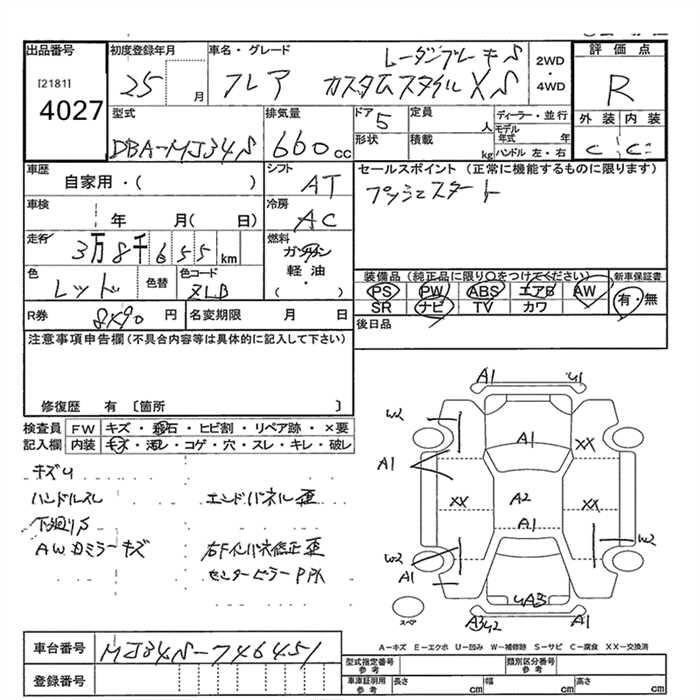 出品番号 初度登録年月 車名・グレード 2WD・4WD 評価点
[2181] 4027
25 月
レーダーブレーキS
フレア カスタムスタイル XS
R
型式 排気量 ドア 定員 ディーラー・並行 外装 内装
DBA-MJ34S 660 cc 5 人 モデル年式 年
形状 積載 kg ハンドル 左・右
C C
車歴 シフト セールスポイント(正常に機能するものに限ります)
自家用・( ) AT
プッシュスタート
車検 年 月( 日) 冷房 AC
走行 3万8千655 km 燃料 ガソリン 軽油・( )
色 レッド 色替 色コード
装備品(純正品に限り○をつけてください) 新車保証書
PS PW ABS エアB AW 有・無
SR ナビ TV カワ
R券 8490 円 名変期限 月 日
後日品
注意事項申告欄(不具合内容等は具体的に記入して下さい)
修復歴 有 〔箇所 〕
検査員 記入欄
FW キズ・飛石・ヒビ割・リペア跡・×要
内装 キズ・汚レ・コゲ・穴・スレ・キレ・破レ
ハンドルスレ エンドパネル歪
下廻りS
AWカミラーキズ
センターピラー
A1 U1
W2 A1 XX
A1
XX A2 XX
A1
W2 W2
A1
A1
スペア
A-キズ E-エクボ U-凹み W-補修跡 S-サビ C-腐食 XX-交換済
車台番号 MJ34S-746451
登録番号
型式指定番号 参考 類別区分番号 参考
車庫証明用 参考 長さ cm 幅 cm 高さ cm